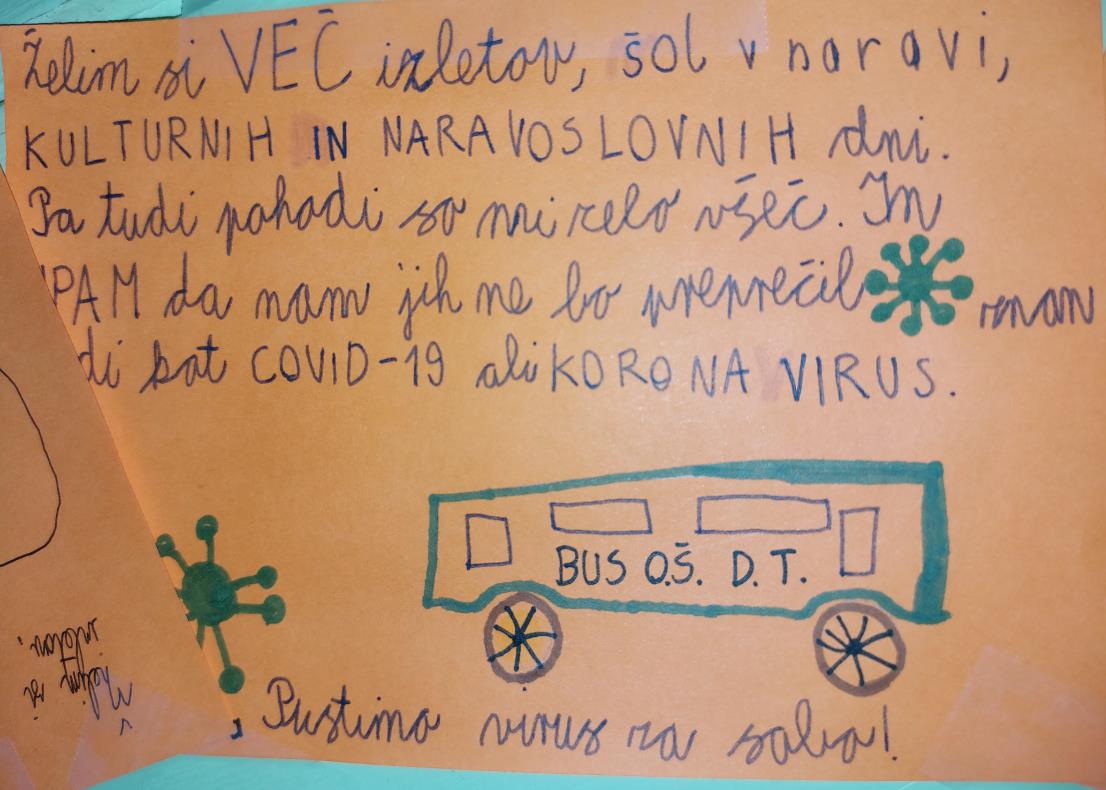 Želim si VEČ izletov, šol v naravi,
KULTURNIH IN NARAVOSLOVNIH dni.
Pa tudi pohodi so mi zelo všeč. In
UPAM da nam jih ne bo preprečil znan
di kot COVID-19 ali KORONA VIRUS.
BUS O.Š. D.T.
Pustimo virus za sabo!